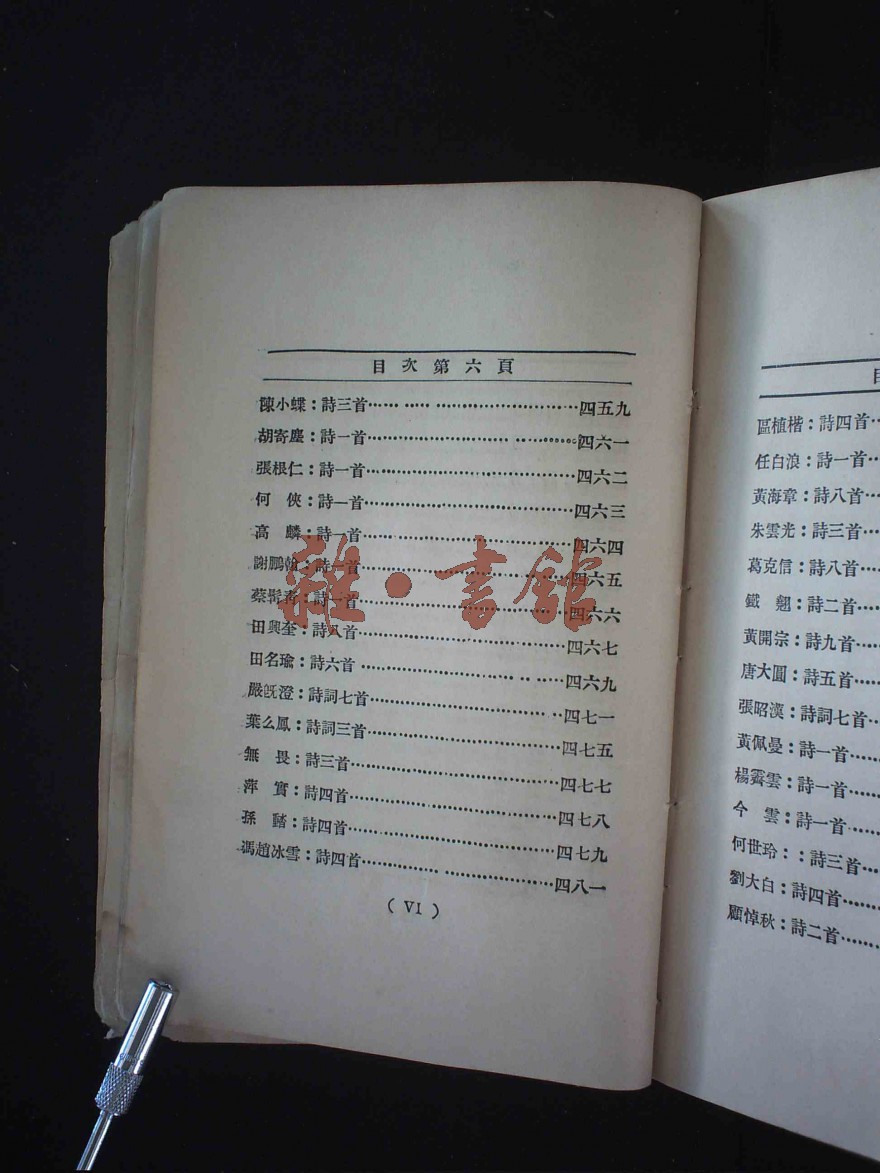 目次第六頁
陳小蝶：詩三首……四五九
胡寄塵：詩一首……四六一
張根仁：詩一首……四六二
何 俠：詩一首……四六三
高 麟：詩一首……四六四
謝鵬翰：詩一首……四六五
蔡髯青：詩一首……四六六
田興奎：詩八首……四六七
田名瑜：詩六首……四六九
嚴旣澄：詩詞七首……四七一
葉么鳳：詩詞三首……四七五
無 畏：詩三首……四七七
萍 實：詩四首……四七八
孫 ：詩四首……四七九
馮趙冰雪：詩四首……四八一
（VI）
雜·書館
目
區植楷：詩四首
任白浪：詩一首
黃海章：詩八首
朱雲光：詩三首
葛克信：詩八首
鐵 翹：詩二首
黃開宗：詩九首
唐大圓：詩五首
張昭漢：詩詞七首
黃佩曼：詩一首
楊霽雲：詩一首
今 雲：詩一首
何世玲：：詩三首
劉大白：詩四首
顧悼秋：詩二首